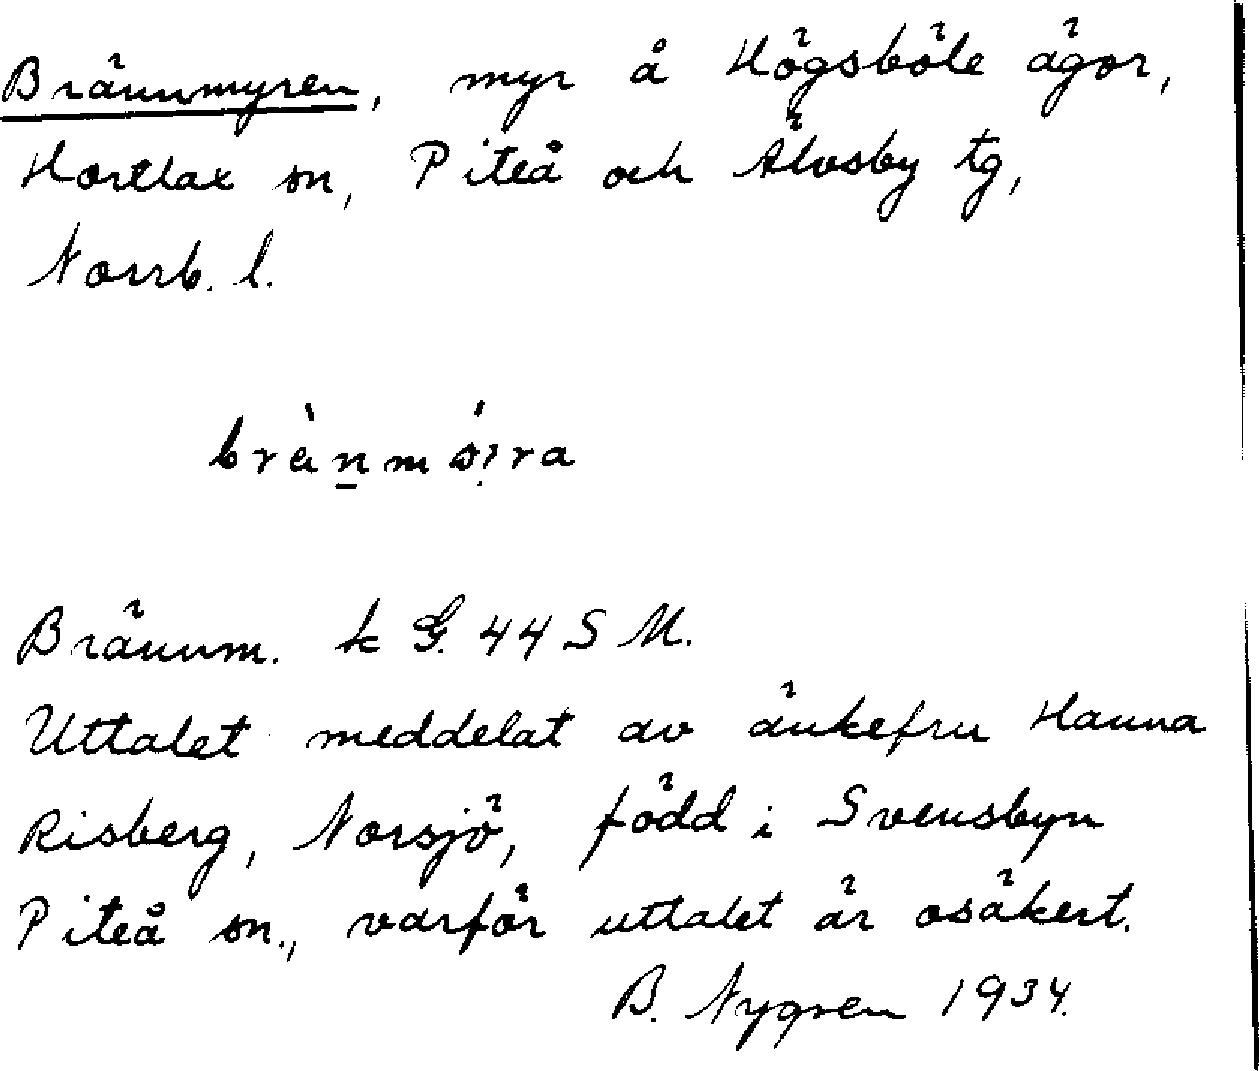 Brännmyren, myr å Högsböle ägor,
Hortlax sn, Piteå och Älvsby tg,
Norrb. l.
Brännm. k G. 44 S M.
Uttalet meddelat av änkefru Hanna
Risberg, Norsjö, född i Svensbyn
Piteå sn., varför uttalet är osäkert.
B. Nygren 1934.